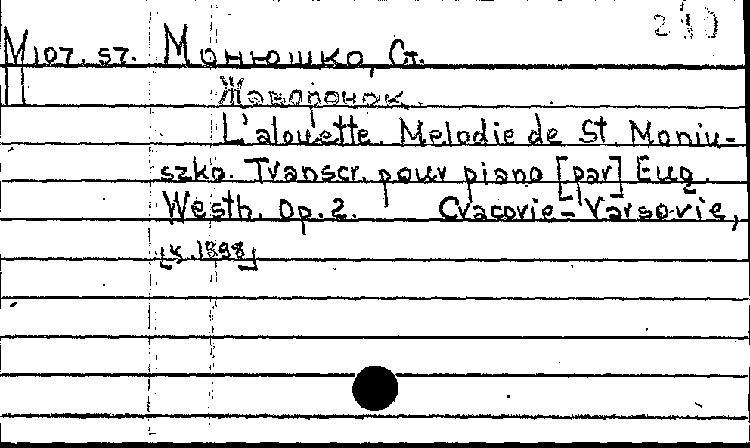 М107. 57. Монюшко, Ст.
П Жаворонок.
L'alouette. Melodie de St. Moniu-
szko. Transcr. pour piano [par] Eug.
Westh. Op. 2. Cracovie-Varsovie,
1898]